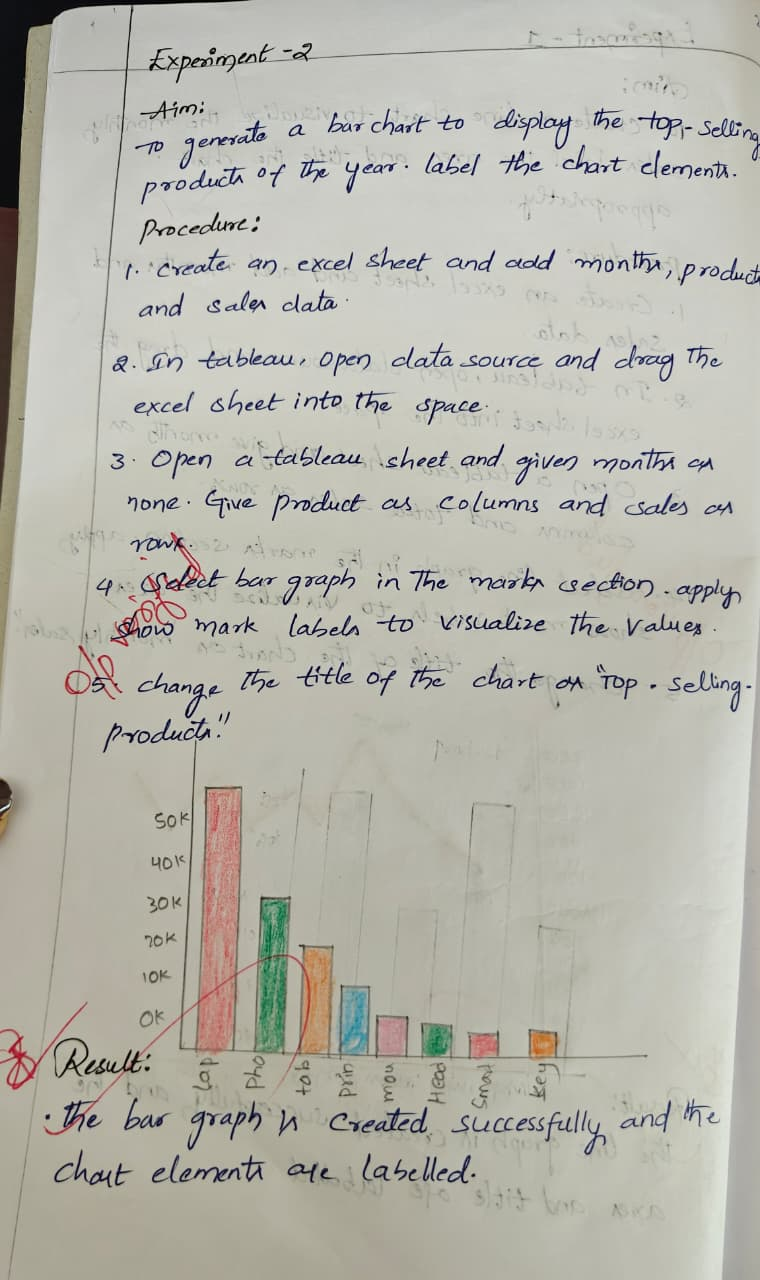 Experiment -2
Aim:
To generate a bar chart to display the top-selling
products of the year. label the chart elements.
Procedure:
1. Create an excel sheet and add months, product
and sales data.
2. In tableau, open data source and drag the
excel sheet into the space.
3. Open a tableau sheet and given months as
none. Give product as columns and sales as
rows.
4. Select bar graph in The marks section. apply
show mark labels to visualize the values.
o/p verified
5. change the title of the chart as "Top. selling.
products"
50K
40K
30K
20K
10K
0K
Lap
Pho
tab
prin
mou
Head
Smart
Key
Result:
. The bar graph is created successfully and the
chart elements are labelled.